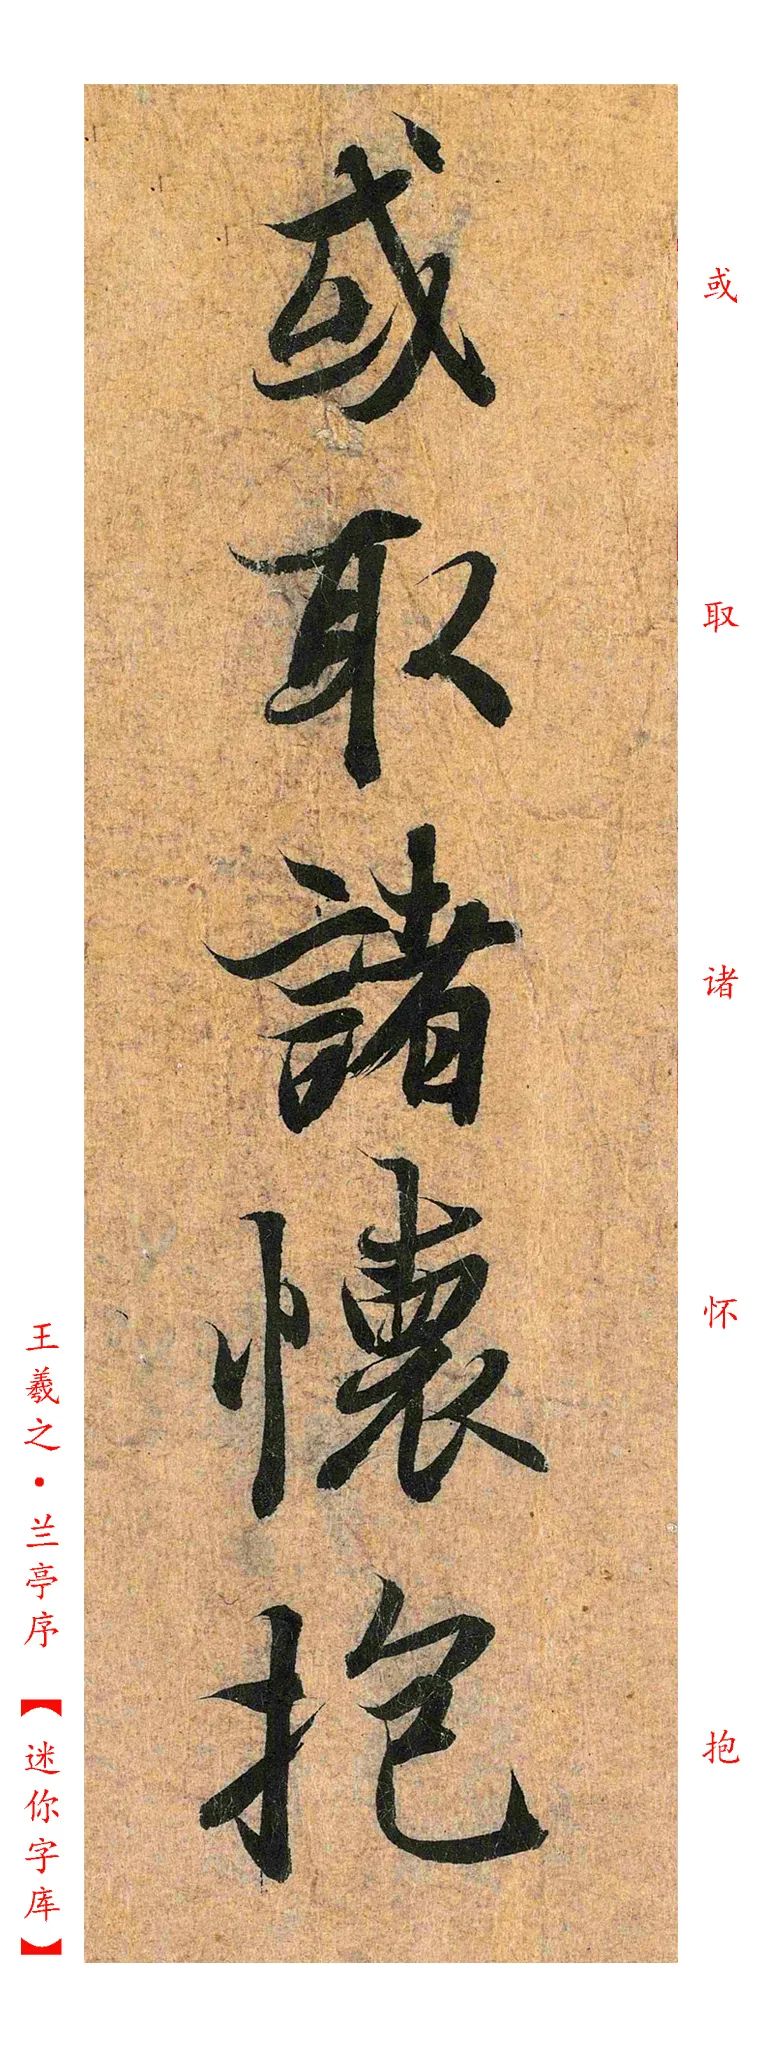 或取諸懷抱
或
取
诸
怀
抱
王羲之·兰亭序【迷你字库】